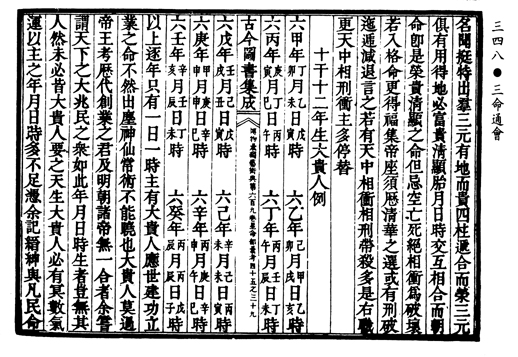 三四八●三命通會
名聞挺特出羣三元有地而貴四柱遞合而榮三元
俱有用得地必富貴清顯胎月日時交互相合而朝
命卽是榮貴清顯之命但忌空亡死絕相衝爲破壞
若入格命更得福集帝座須歷清華之選或有刑破
迤逓減退言之若有天中相衝相刑帶殺多是右職
更天中相刑衝主多停替
十干十二年生大貴人例
六甲年 月 日 時 六乙年 月 日 時
六丙年 月 日 時 六丁年 月 日 時
古今圖書集成
六戊年 月 日 時 六己年 月 日 時
六庚年 月 日 時 六辛年 月 日 時
六壬年 月 日 時 六癸年 月 日 時
以上逐年只有一日一時主有大貴人應世建功立
業之命不然出塵神仙常術不能曉也大貴人莫過
帝王考歷代創業之君及明朝諸帝無一合者余嘗
謂天下之大兆民之衆如此年月日時生者豈無其
人然未必皆大貴人要之天生大貴人必有冥數氣
運以主之年月日時多不足憑余記縉紳與凡民命